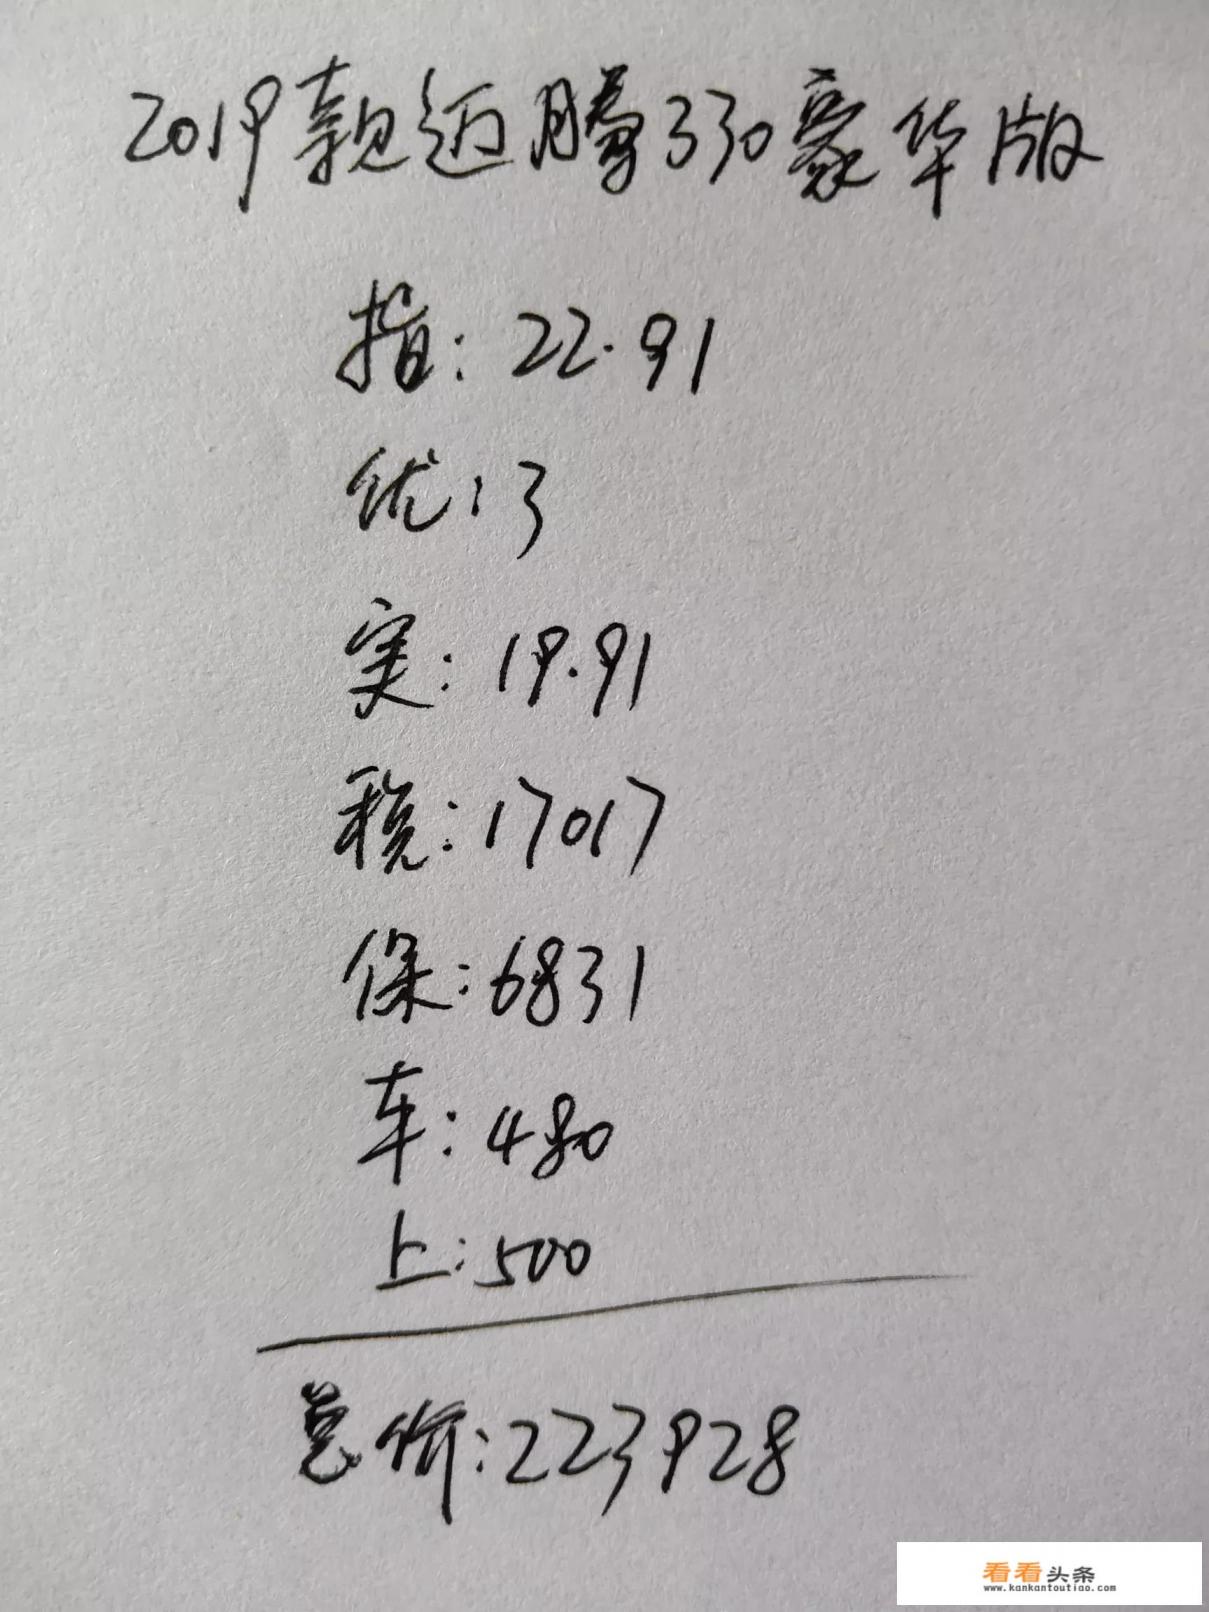 2019款迈腾330豪华版
指:22.91
优:3
实:19.91
税:17017
保:6831
车:480
上:500
总价:223928
看看头条
www.kankantoutiao.com